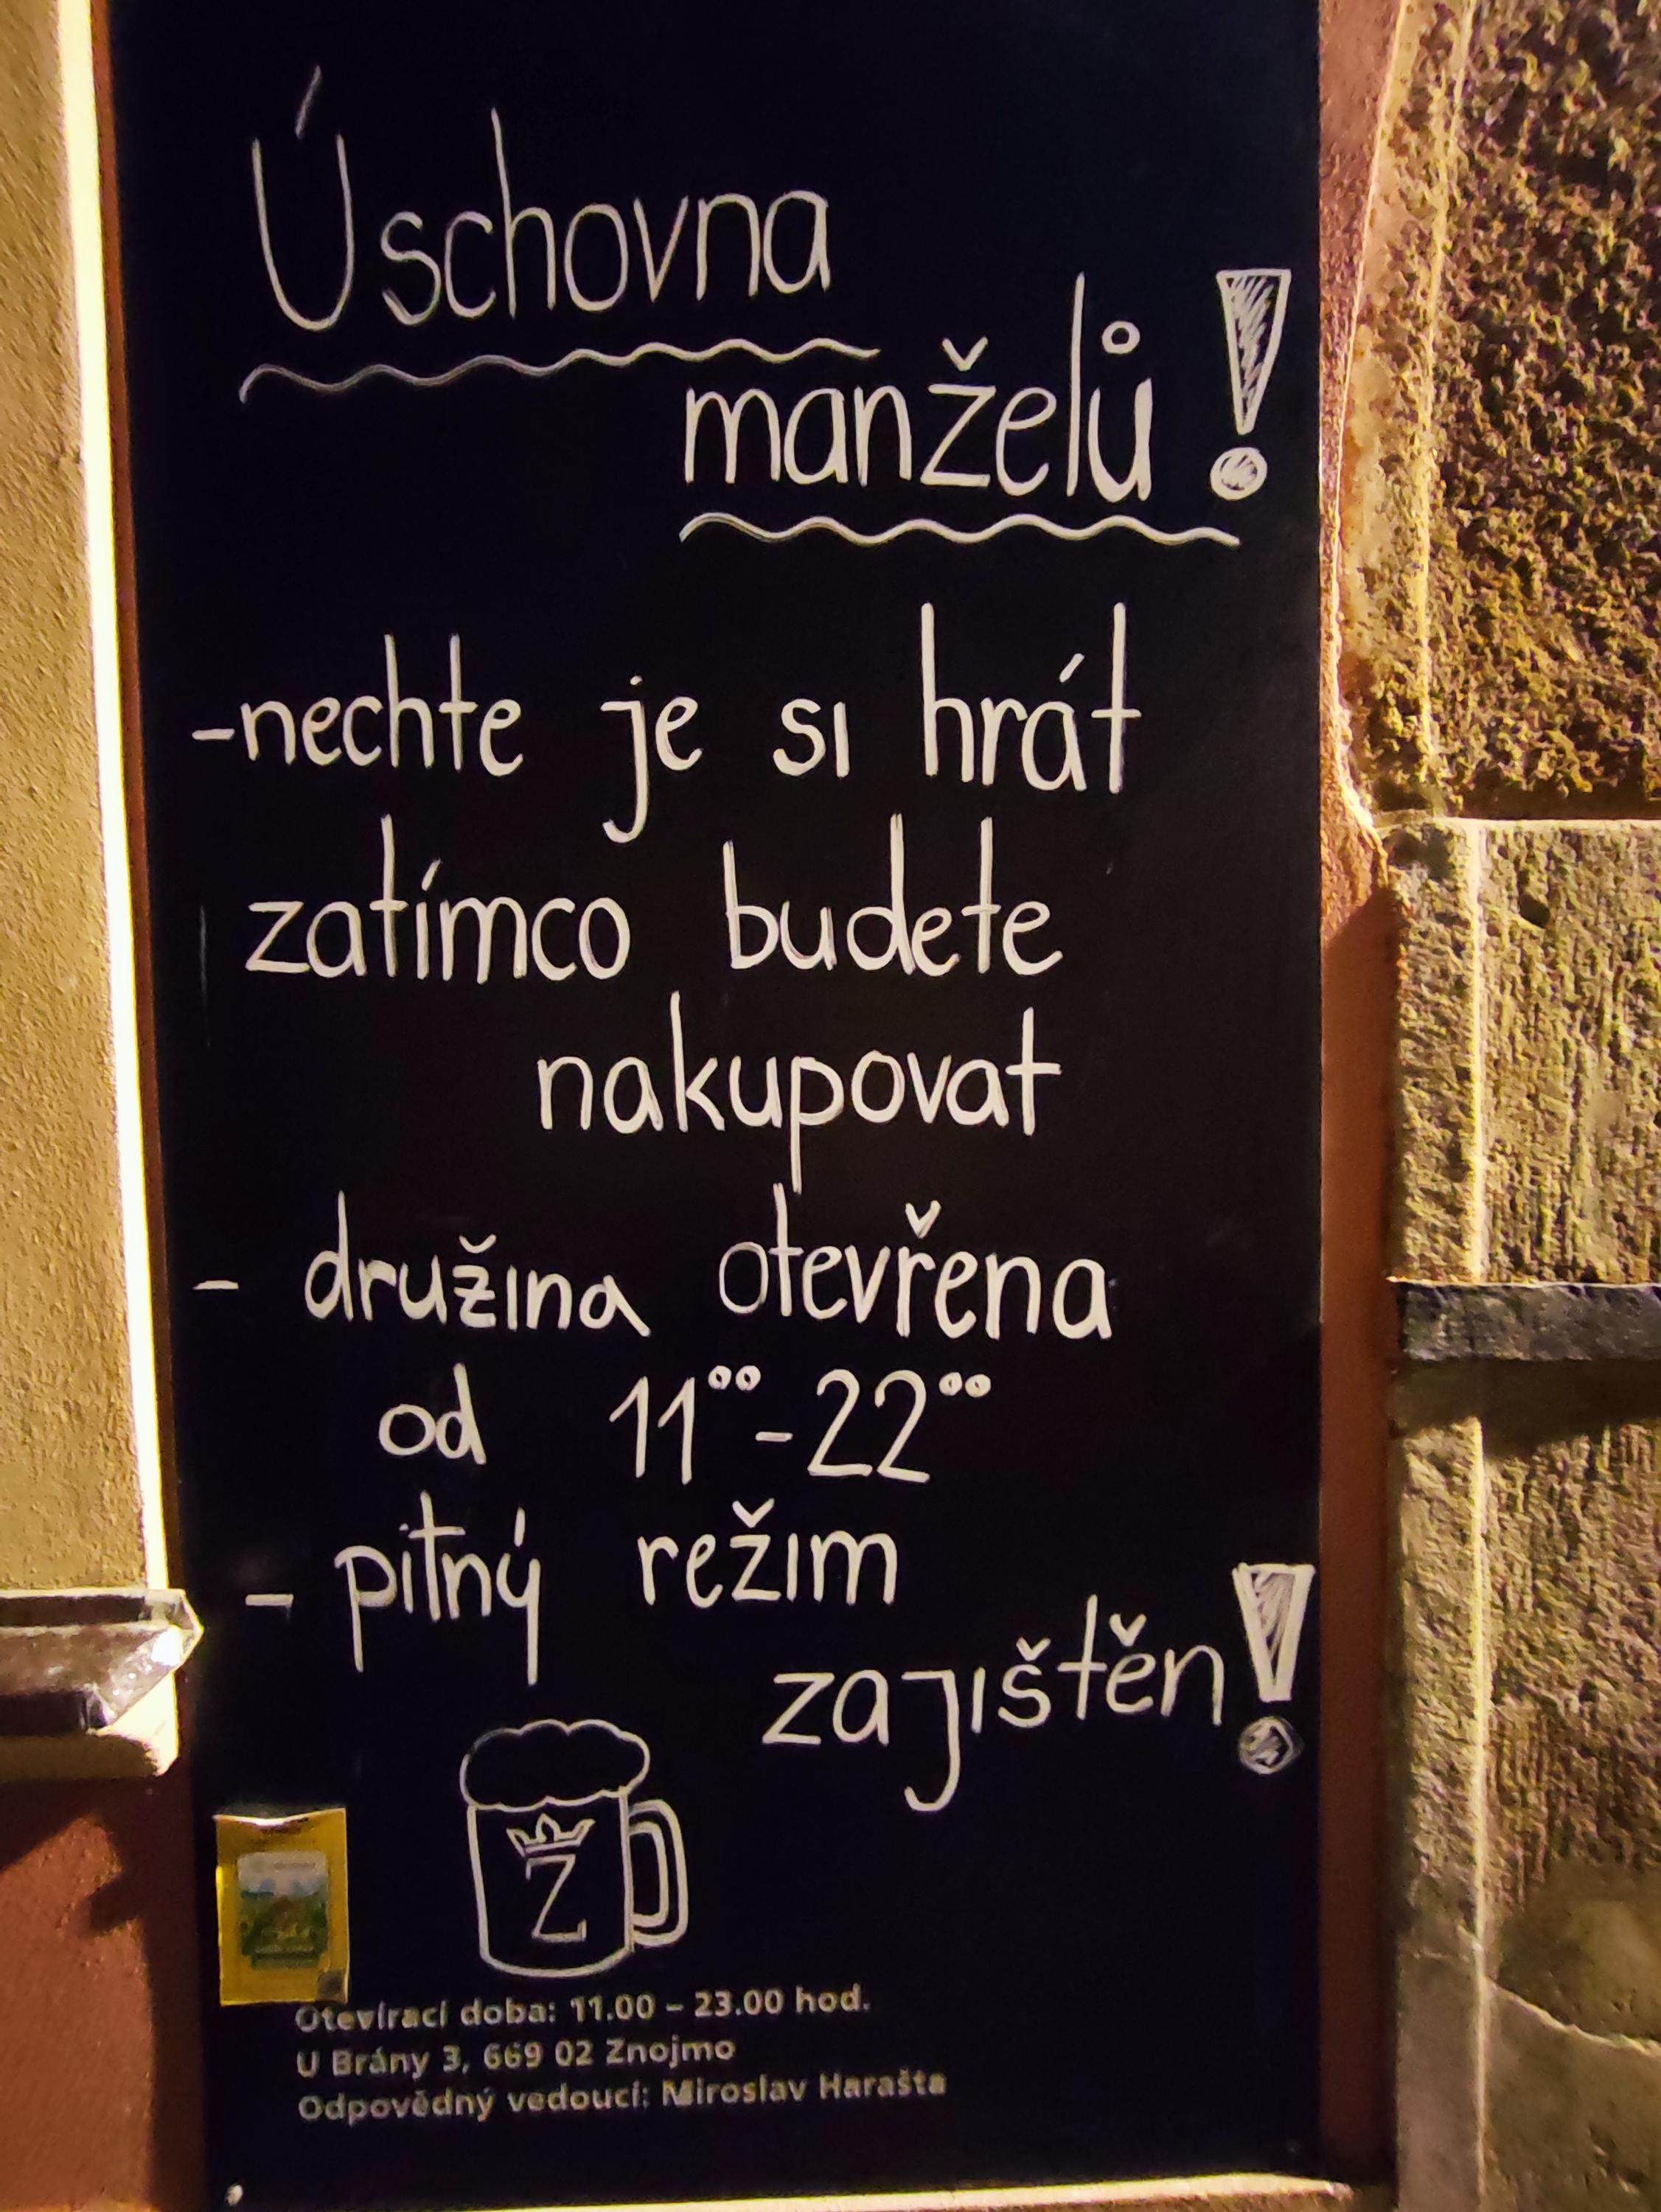 Úschovna
manželů!
-nechte je si hrát
zatímco budete
nakupovat
- družina otevřena
od 11⁰⁰-22⁰⁰
- pitný režim
zajištěn!
Z
Otevírací doba: 11.00 – 23.00 hod.
U Brány 3, 669 02 Znojmo
Odpovědný vedoucí: Miroslav Harašta